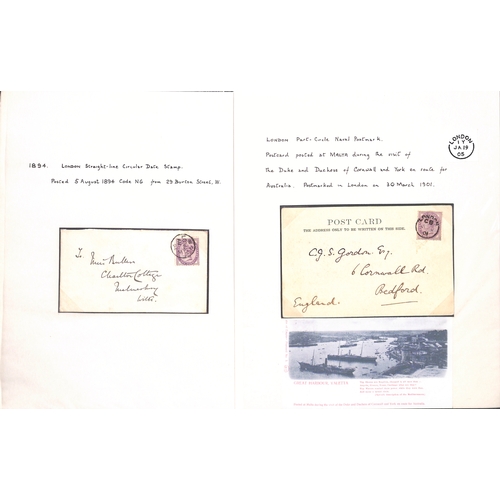 1894. London Straight-line Circular Date Stamp.
Posted 5 August 1894 Code NG from 29 Burton Street, W.
To
Miss
Charlton Cottage
Malmesbury
Wilts.
London Part-Circle Naval Postmark.
Postcard posted at MALTA during the visit of
The Duke and Duchess of Cornwall and York en route for
Australia. Postmarked in London on 30 March 1901.
LONDON
1 Y
JA 19
05
POST CARD
THE ADDRESS ONLY TO BE WRITTEN ON THIS SIDE.
C.J.S. Gordon Esq.
6 Cornwall Rd.
Bedford.
England.
GREAT HARBOUR, VALETTA